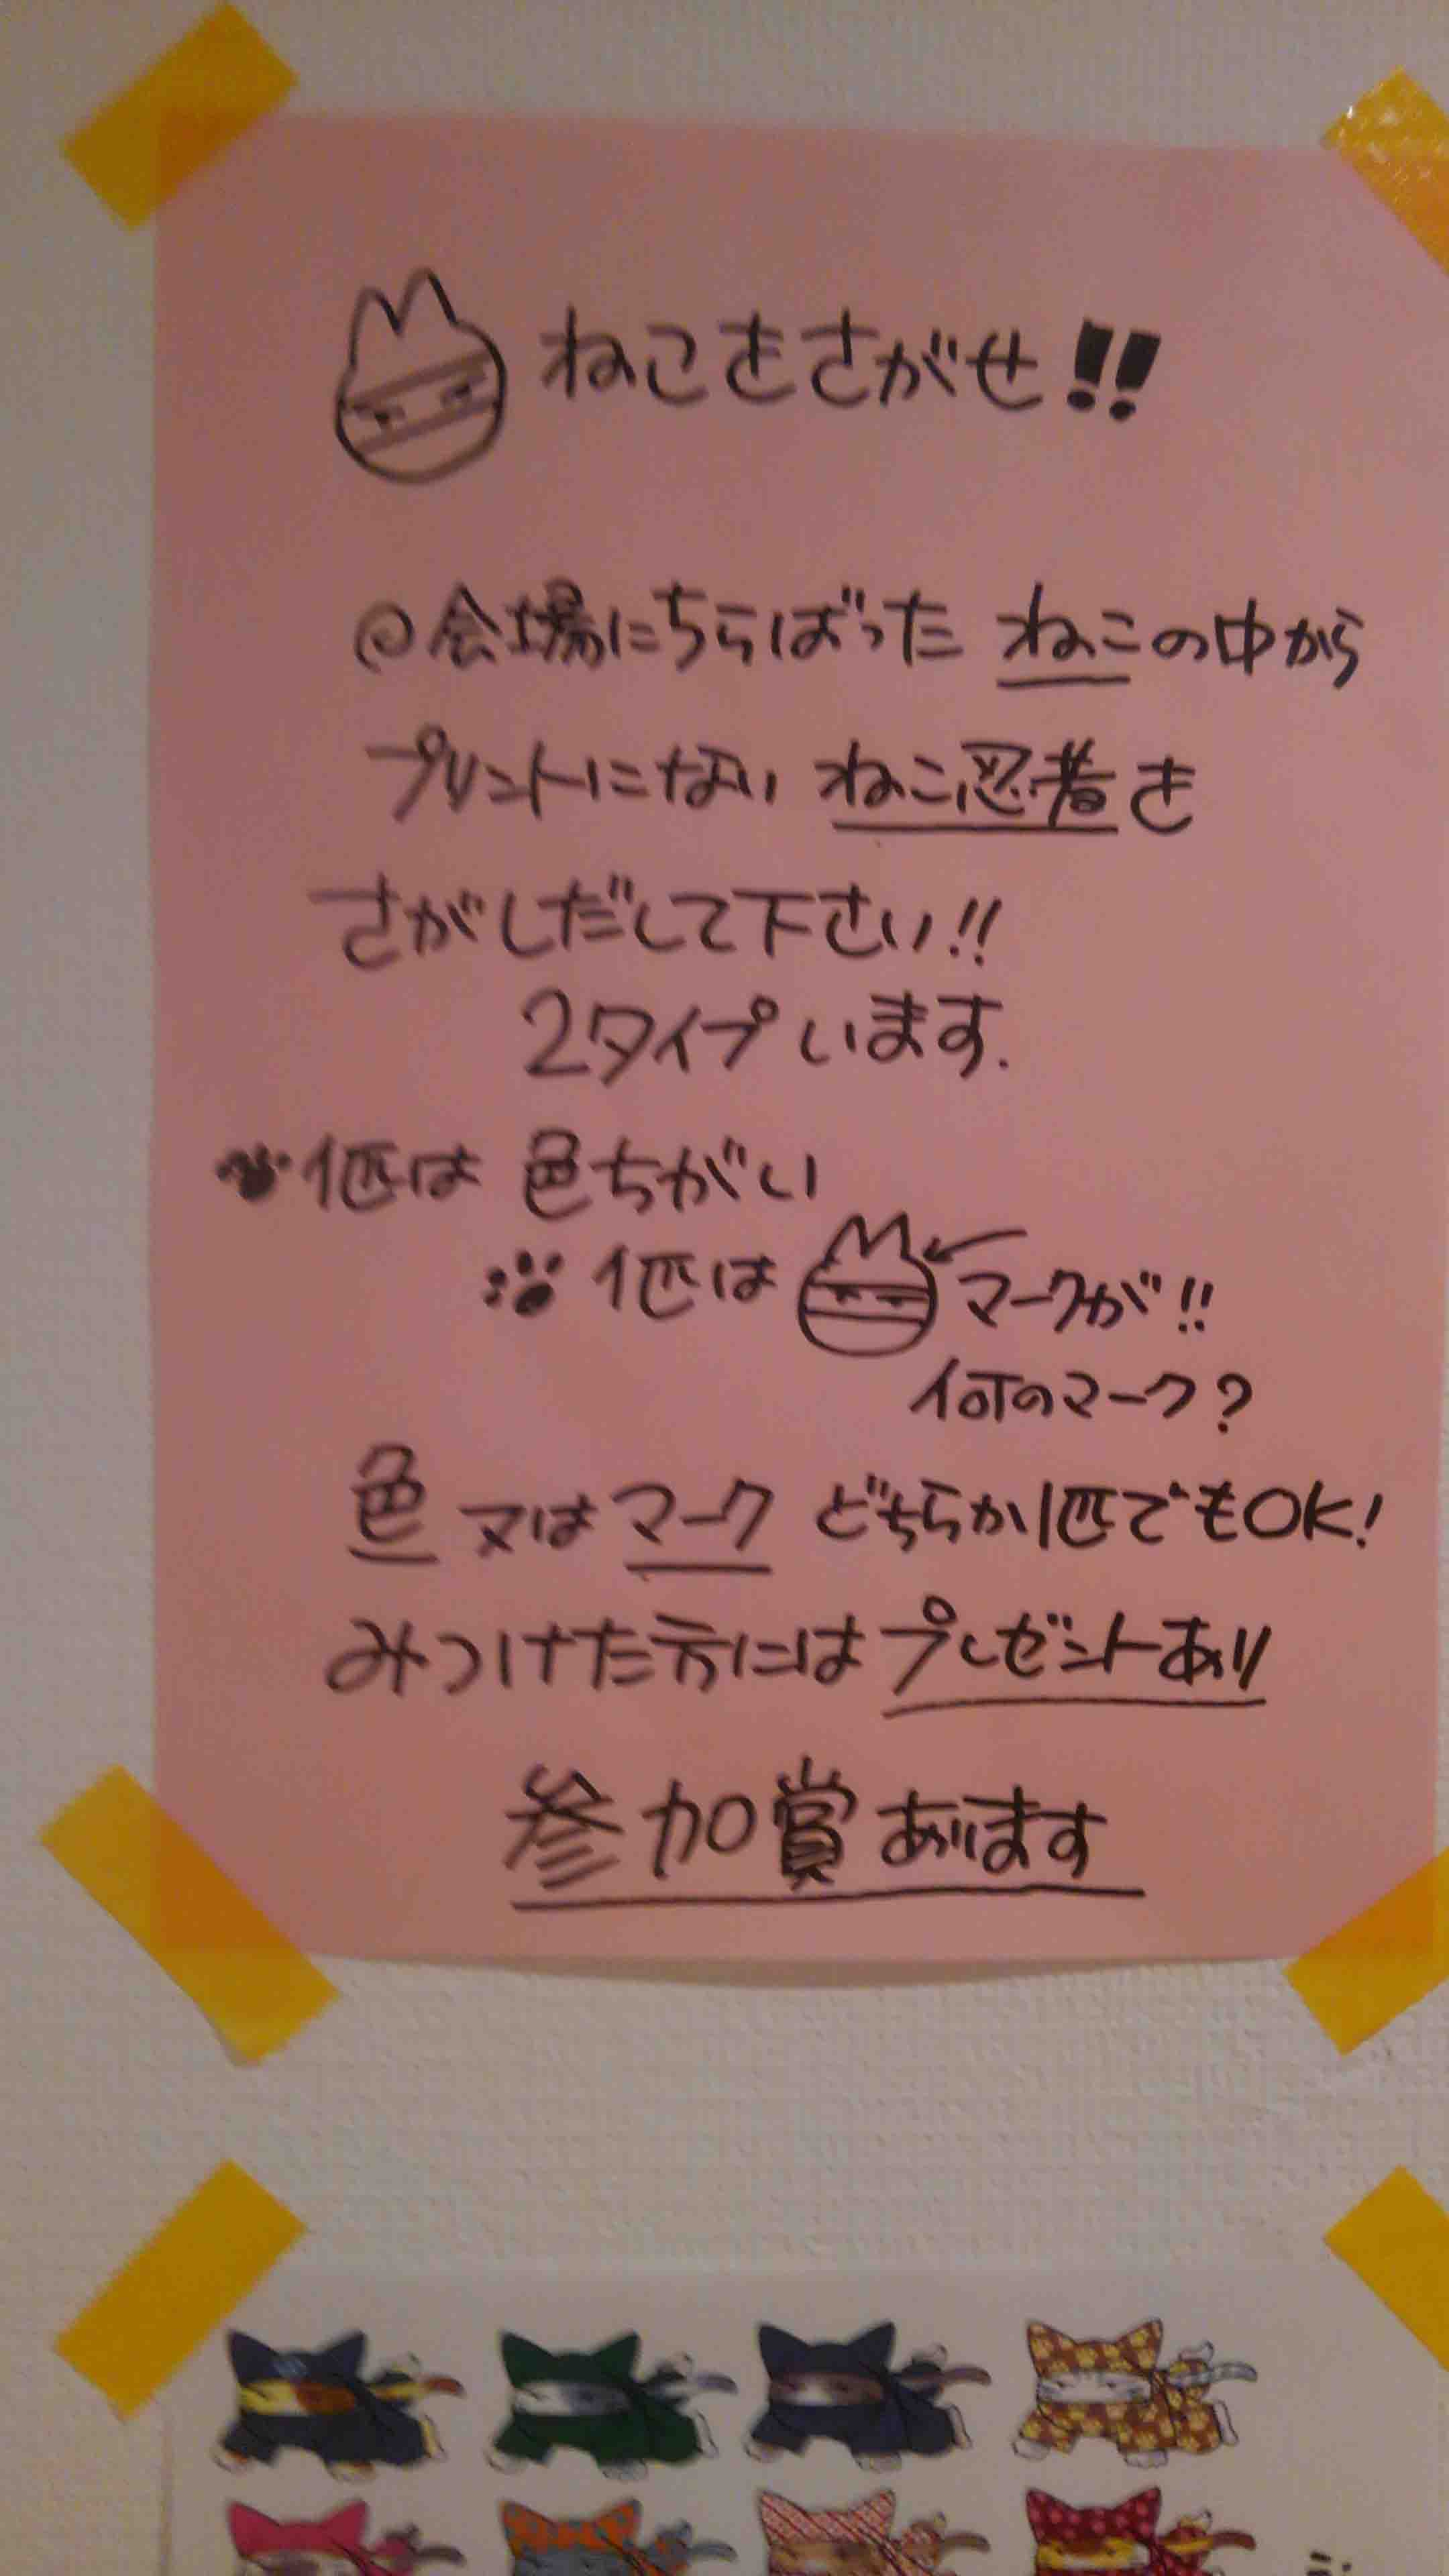 ねこをさがせ!!
◎会場にちらばった ねこの中から
プリントにない ねこ忍者を
さがしだして下さい!!
2タイプいます.
1匹は 色ちがい
1匹は マークが!!
何のマーク?
色 又は マーク どちらか1匹でもOK!
みつけた方には プレゼントあり
参加賞あります